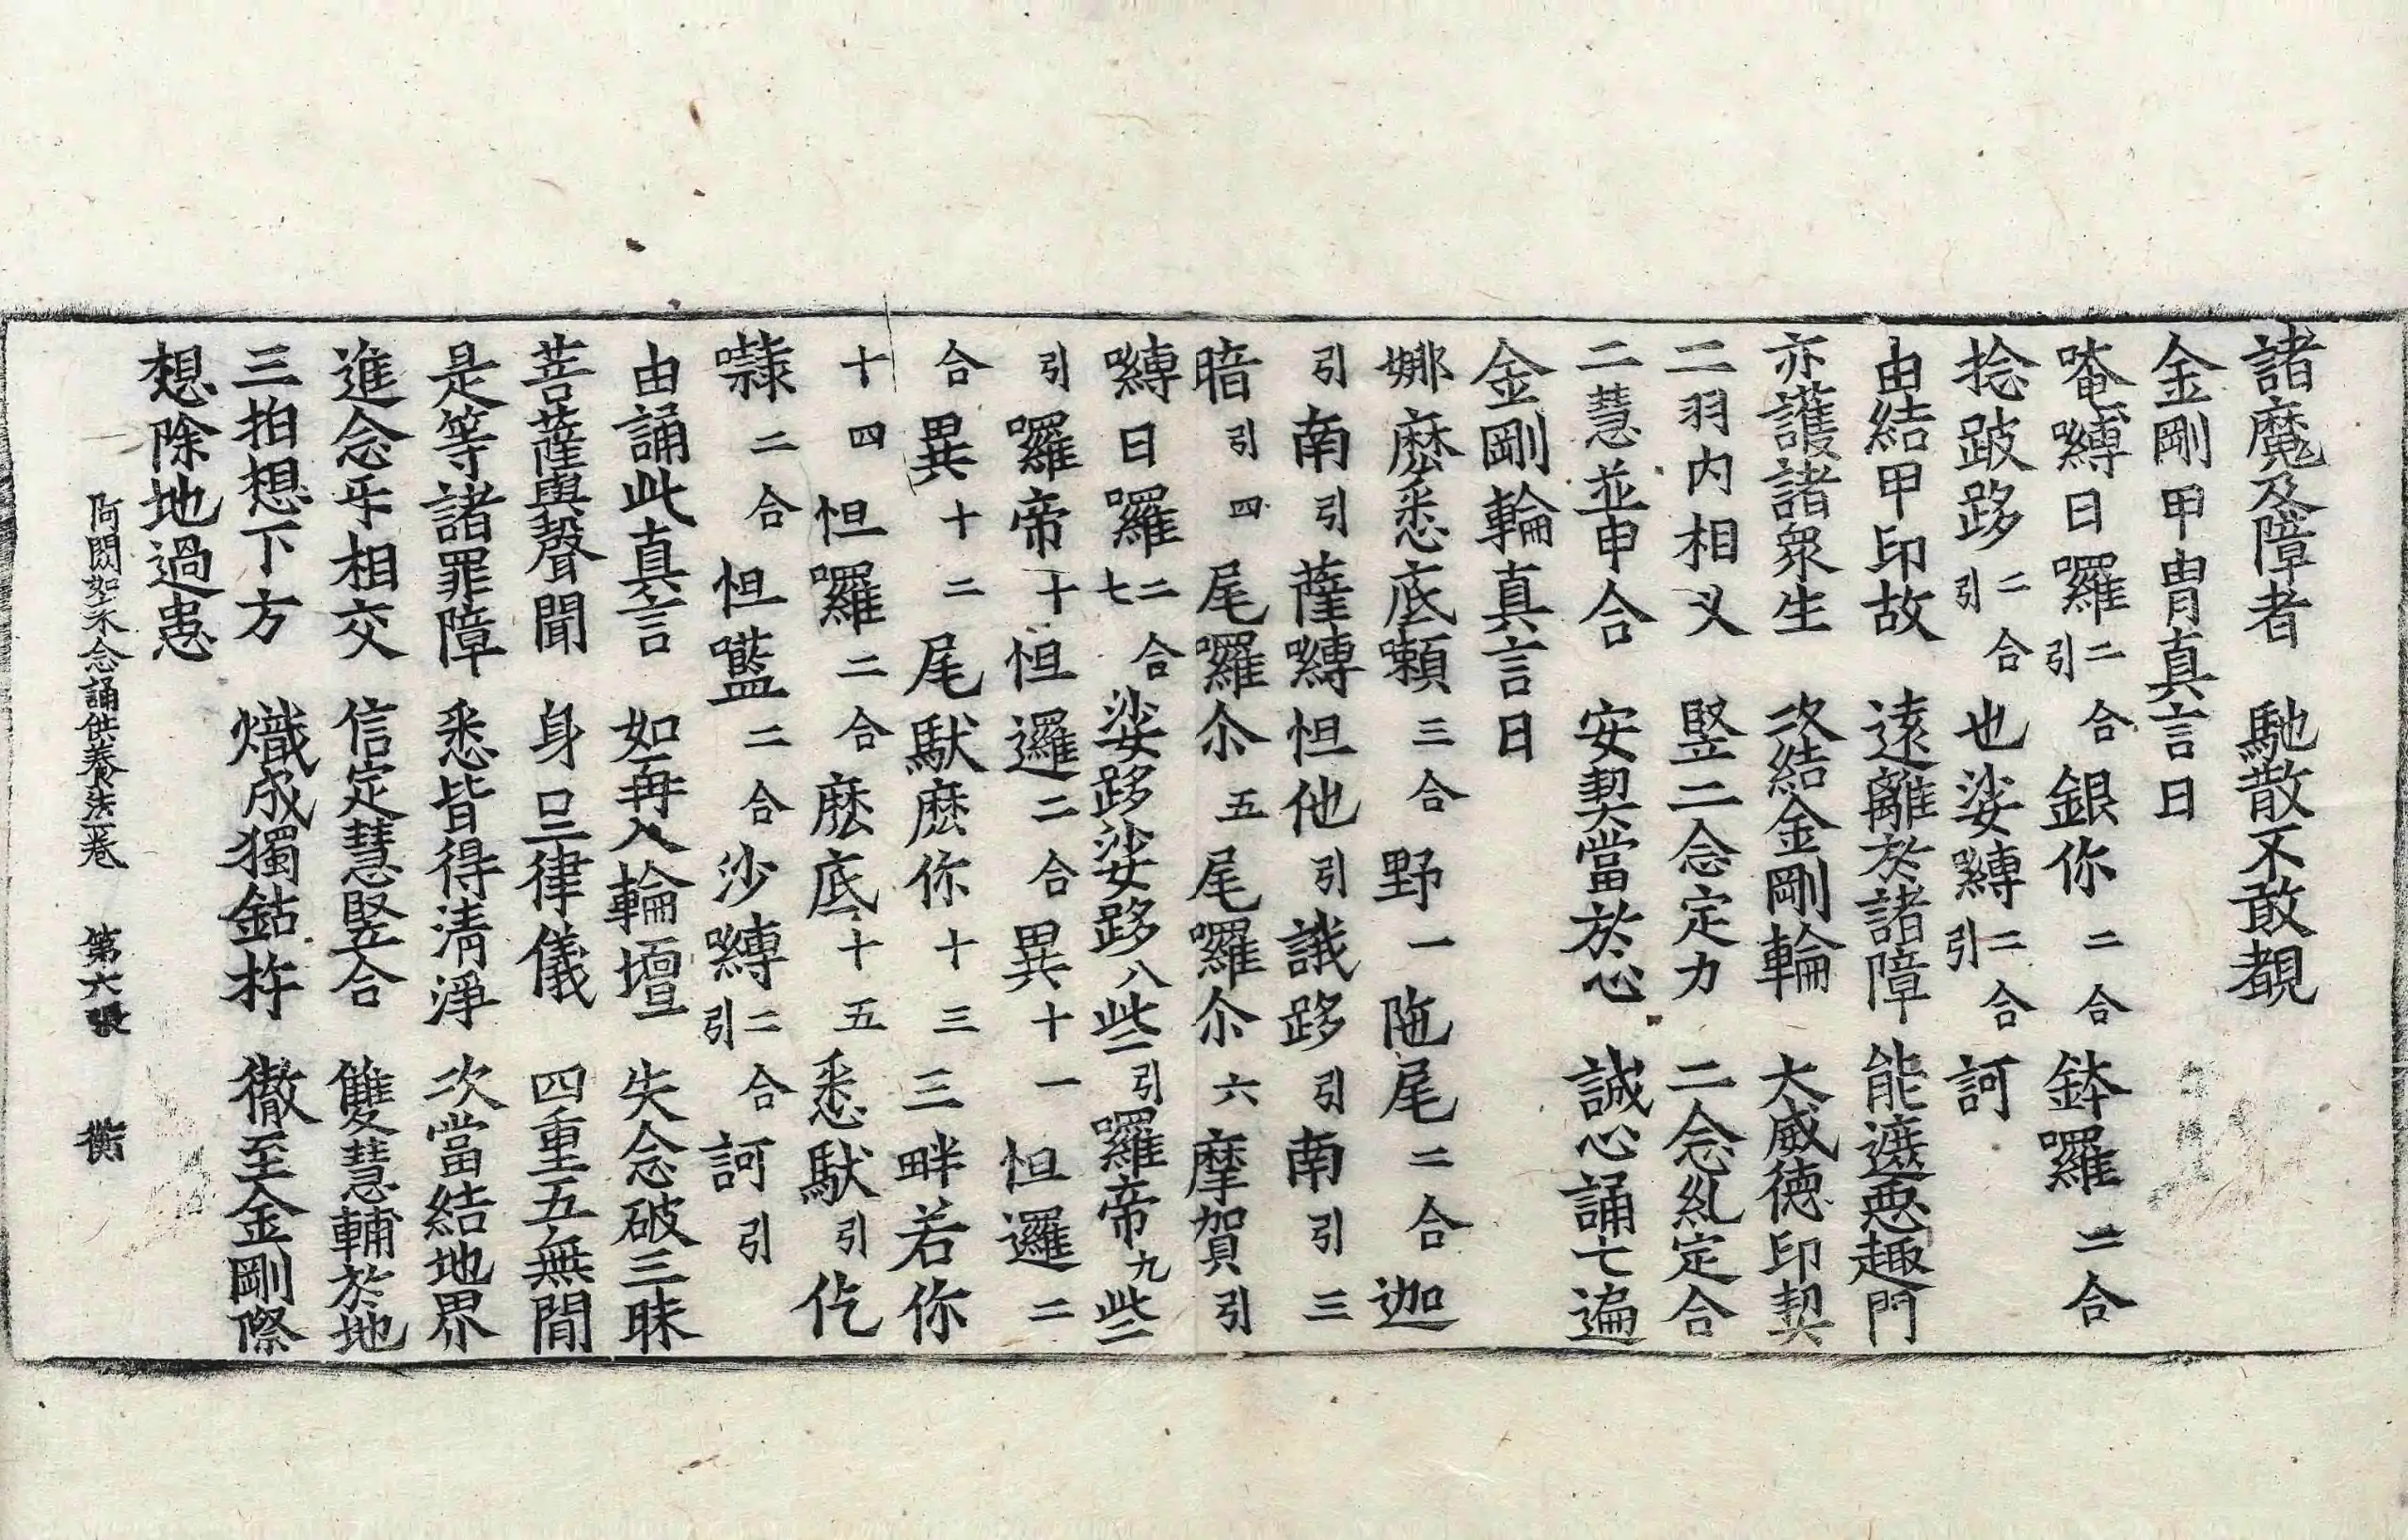 諸魔及障者　馳散不敢覩
金剛甲冑真言曰
唵嚩日囉二合引銀你二合鉢囉二合
捻跛跢二合引也娑嚩二合引訶
由結甲印故　遠離於諸障　能遮惡趣門
亦護諸衆生　次結金剛輪　大威德印契
二羽内相叉　竪二念定力　二念糺定合
二慧並申合　安契當於心　誠心誦七遍
金剛輪真言曰
娜麽悉底嚬三合野一陁尾二合迦
引南引薩嚩怛他引誐跢引南引三
暗引四尾囉尒五尾囉尒六摩賀引
嚩日囉二合七娑跢娑跢八些引囉帝九些
引囉帝十怛邏二合異十一怛邏二
合異十二尾馱麽你十三三畔若你
十四怛囉二合麽底十五悉馱引仡
㘑二合怛㘕二合沙嚩二合引訶引
由誦此真言　如再入輪壇　失念破三昧
菩薩與聲聞　身口三律儀　四重五無間
是等諸罪障　悉皆得清淨　次當結地界
進念㸦相交　信定慧竪合　雙慧輔於地
三拍想下方　熾成獨鈷杵　徹至金剛際
想除地過患
阿閦如來念誦供養法一卷　第六張　衡